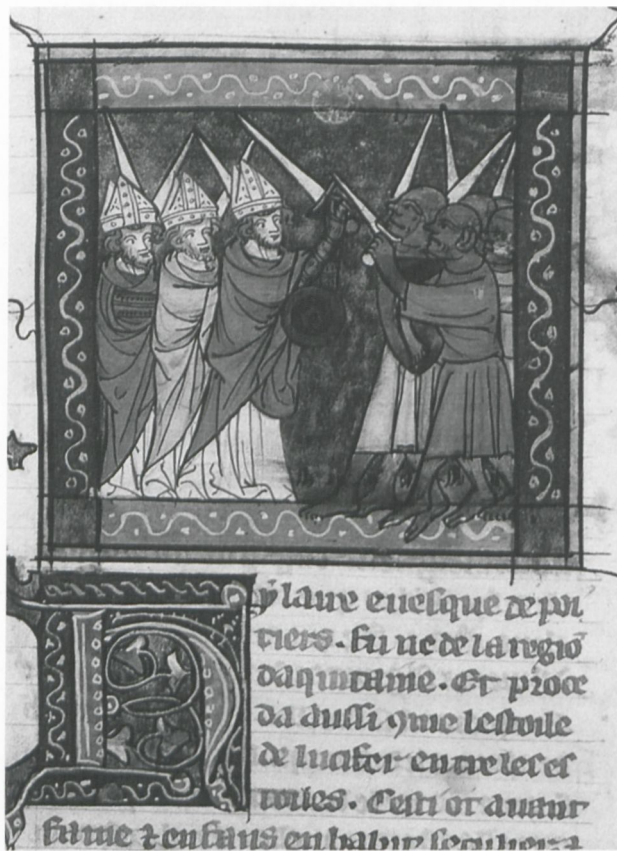 Hylaire euesque de poi
tiers. fu ne de la regio
daquitaine. Et proce
da aussi 9me lestoile
de lucifer entre les es
toiles. Cesti or auant
fame ⁊ enfans en habit seculier a